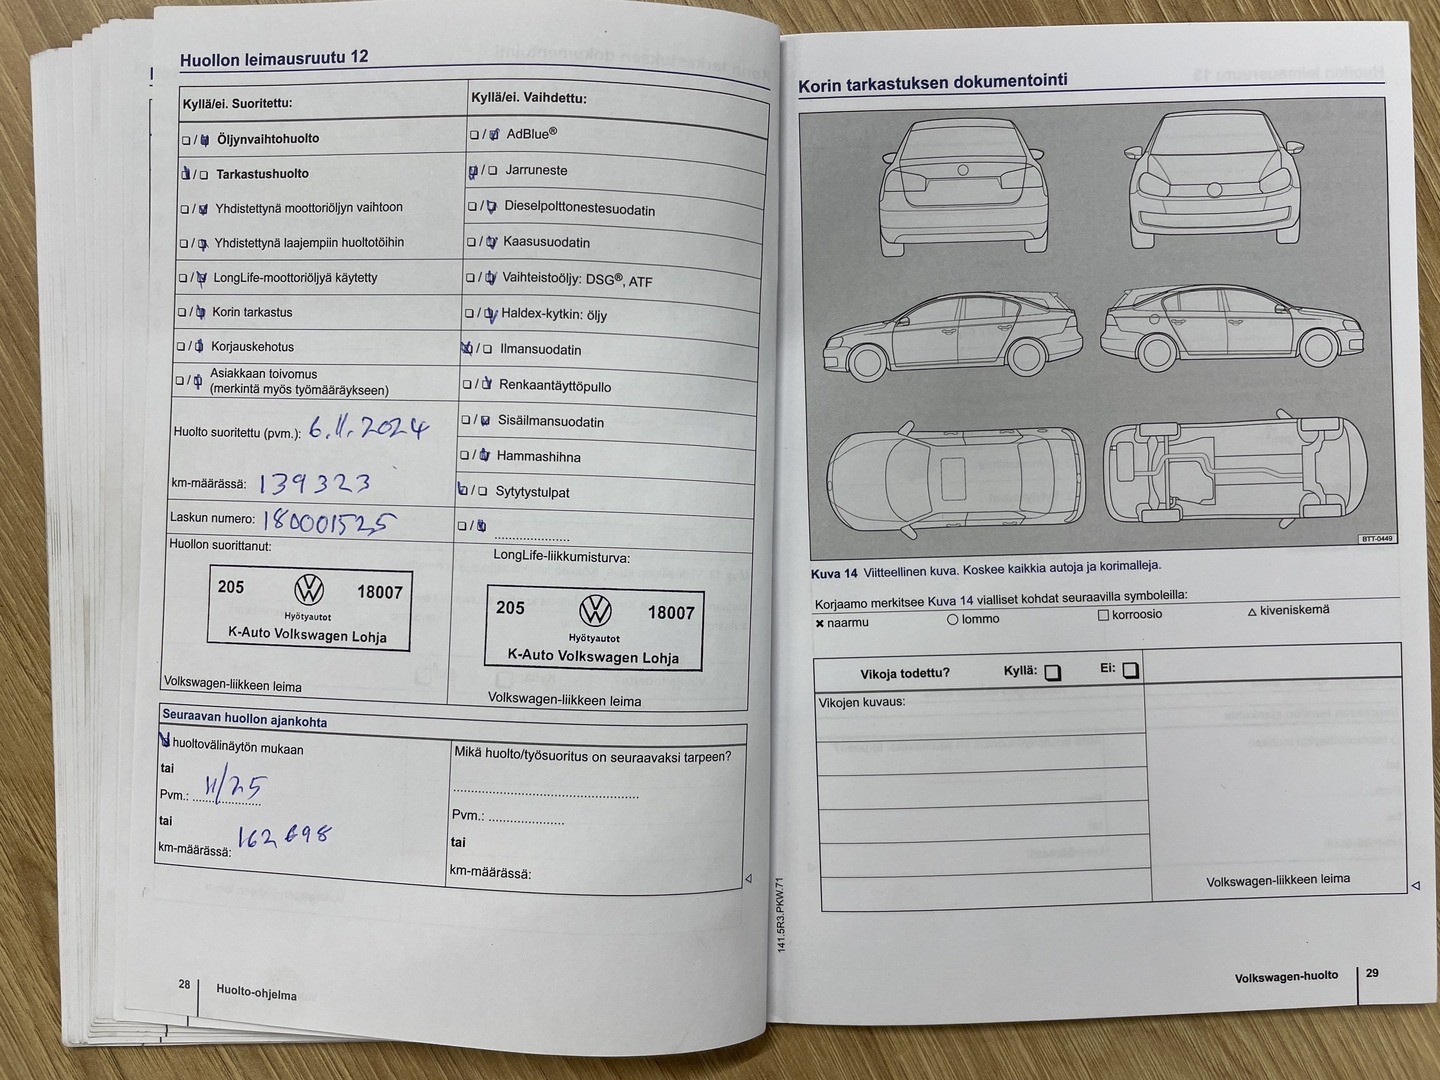 Huollon leimausruutu 12
Kyllä/ei. Suoritettu:
☐ / ☑ Öljynvaihtohuolto
☑ / ☐ Tarkastushuolto
☐ / ☑ Yhdistettynä moottoriöljyn vaihtoon
☐ / ☑ Yhdistettynä laajempiin huoltotöihin
☐ / ☑ LongLife-moottoriöljyä käytetty
☐ / ☑ Korin tarkastus
☐ / ☑ Korjauskehotus
☐ / ☑ Asiakkaan toivomus
(merkintä myös työmääräykseen)
Huolto suoritettu (pvm.): 6.11.2024
km-määrässä: 139323
Laskun numero: 180001525
Huollon suorittanut:
205 18007
Hyötyautot
K-Auto Volkswagen Lohja
Volkswagen-liikkeen leima
Kyllä/ei. Vaihdettu:
☐ / ☑ AdBlue®
☑ / ☐ Jarruneste
☐ / ☑ Dieselpolttonestesuodatin
☐ / ☑ Kaasusuodatin
☐ / ☑ Vaihteistoöljy: DSG®, ATF
☐ / ☑ Haldex-kytkin: öljy
☑ / ☐ Ilmansuodatin
☐ / ☑ Renkaantäyttöpullo
☐ / ☑ Sisäilmansuodatin
☐ / ☑ Hammashihna
☑ / ☐ Sytytystulpat
☐ / ☑ ....................
LongLife-liikkumisturva:
205 18007
Hyötyautot
K-Auto Volkswagen Lohja
Volkswagen-liikkeen leima
Seuraavan huollon ajankohta
☑ huoltovälinäytön mukaan
tai
Pvm.: 11/25
tai
km-määrässä: 162698
Mikä huolto/työsuoritus on seuraavaksi tarpeen?
Pvm.: ....................
tai
km-määrässä:
28 Huolto-ohjelma
Korin tarkastuksen dokumentointi
BTT-0449
Kuva 14 Viitteellinen kuva. Koskee kaikkia autoja ja korimalleja.
Korjaamo merkitsee Kuva 14 vialliset kohdat seuraavilla symboleilla:
✖ naarmu ○ lommo ☐ korroosio △ kiveniskemä
Vikoja todettu? Kyllä: ☐ Ei: ☐
Vikojen kuvaus:
Volkswagen-liikkeen leima
141.5R3.PKW.71
Volkswagen-huolto 29